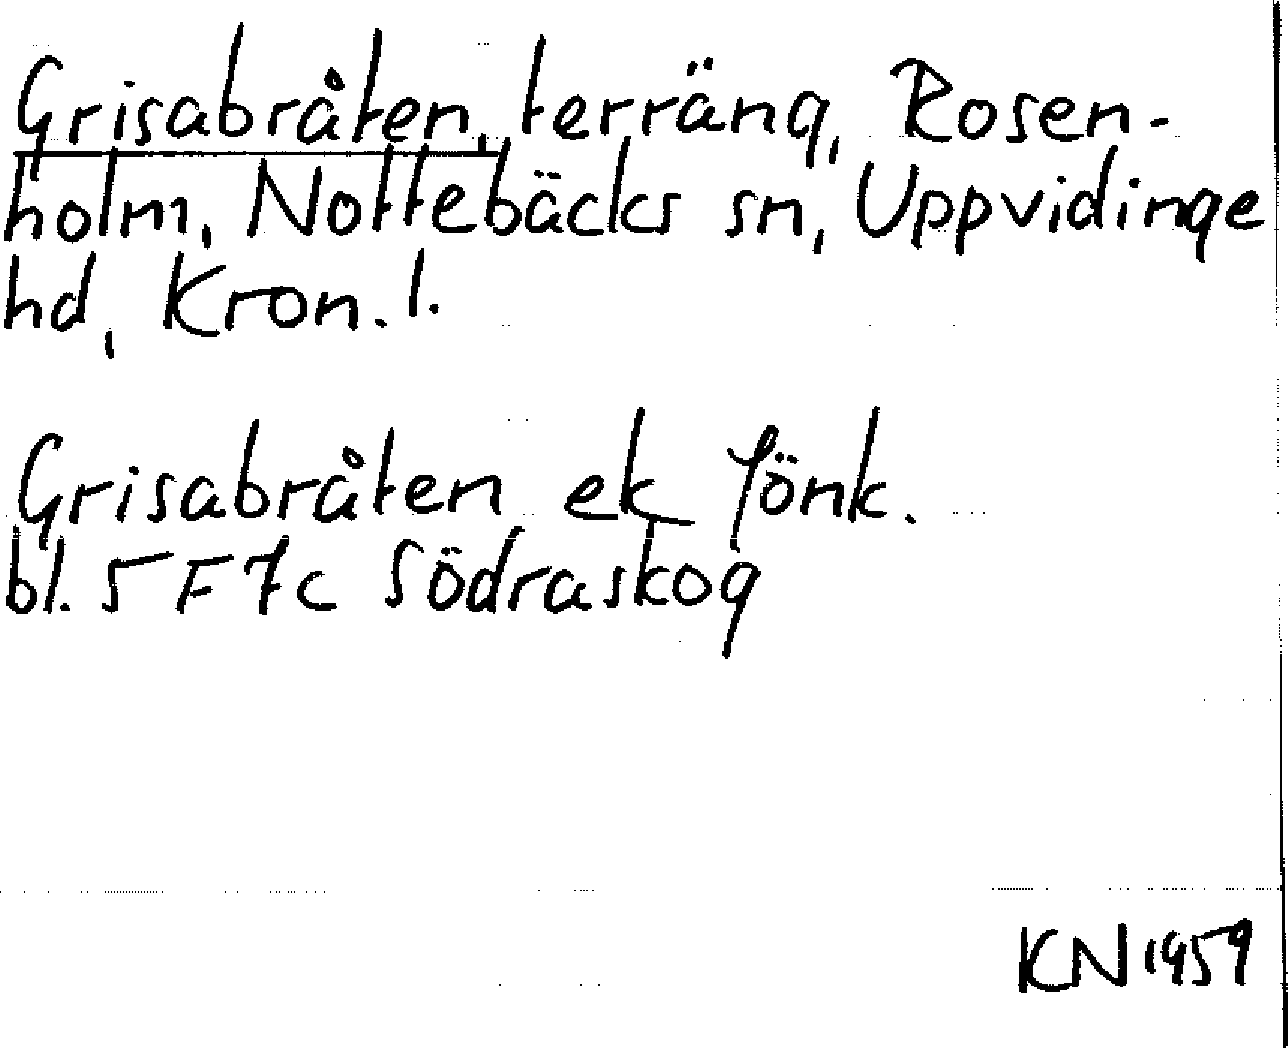 Grisabråten, terräng, Rosen-
holm, Nottebäcks sn, Uppvidinge
hd, Kron. l.
Grisabråten ek Jönk.
bl. 5 F 7c Södraskog
KN 1959